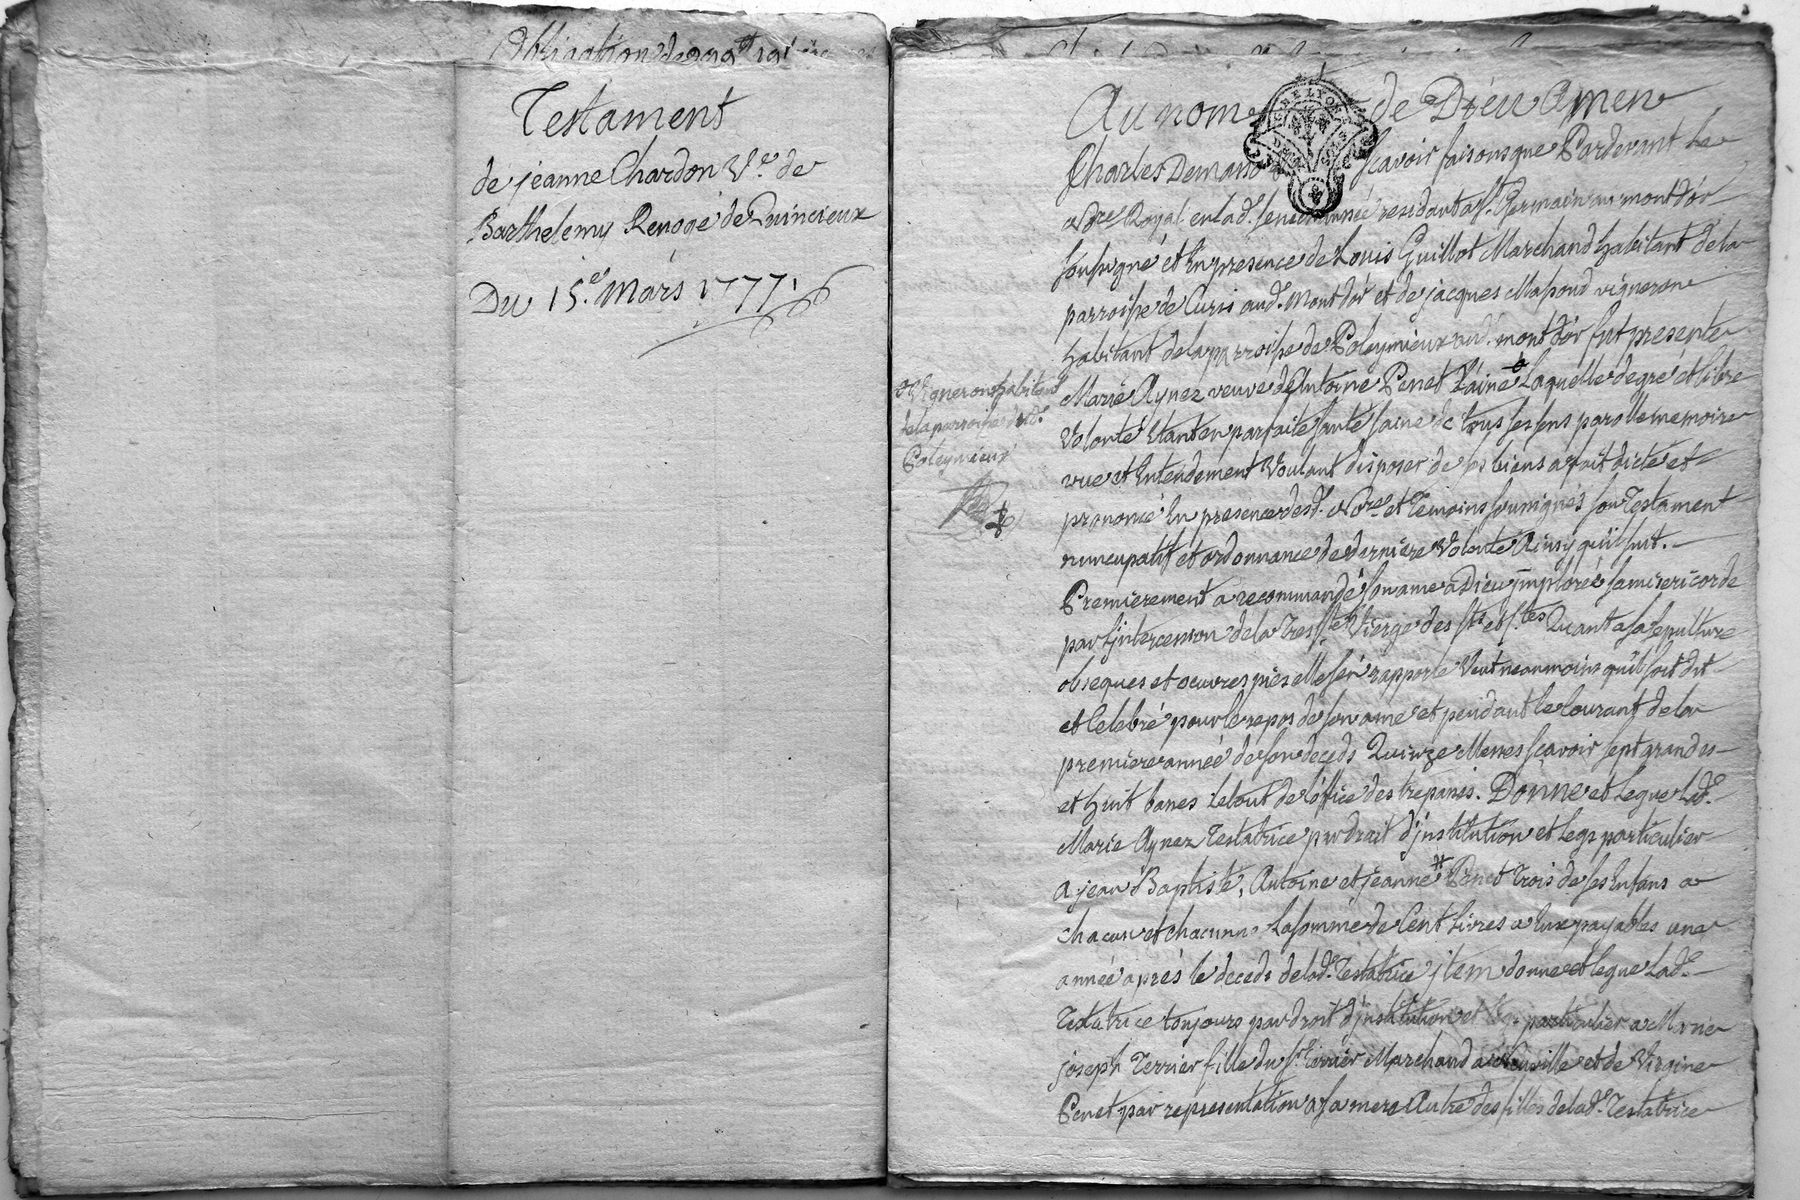 Obligation de
Testament
de jeanne Chardon V.e de
Barthelemy Renoge de Quincieux
Du 15.e Mars 1777.
Au nom de Dieu Amen
Charles Demand sçavoir faisons que Pardevant Le
no.re Royal en lad. senechaussée residant a s.t Germain au mont d'or
soussigné et En presence de Louis Guillot Marchand habitant de la
parroisse de Curis aud. Mont d'or et de jacques Massoud vigneron
habitant de la parroisse de Poleymieux aud. mont d'or fut presente
Marie Aynez veuve de Antoine Penet L'ainé Laquelle de gré et libre
Volonté Etant en parfaite santé saine de tous ses sens parolle memoire
vue et Entendement Voulant disposer de ses biens a fait dicté et
prononcé En presence desd. No.re et temoins soussignés son Testament
nuncupatif et ordonnance de derniere Volonté Ainsy qu'il suit.
Premierement a recommandé son ame a Dieu jmploré sa misericorde
par L'jntercession de la Tres s.te Vierge des s.ts et s.tes Quant a sa sepulture
obseques et oeuvres pies elle s'en rapporte Veut neanmoins qu'il soit dit
et Celebré pour le repos de son ame et pendant le Courant de la
premiere année de son deceds Quinze Messes sçavoir sept grandes
et huit basses le tout de l'office des trepassés. Donne et Legue Lad.e
Marie Aynez Testatrice par droit d'jnstitution et Legs particulier
A jean Baptiste, Antoine et jeanne # Penet Trois de ses Enfans a
chacun et chacunne La somme de Cent Livres a Eux payables une
année aprés le deceds de lad.e Testatrice jtem donne et legue Lad.e
Testatrice toujours par droit d'jnstitution et Legs particulier a Marie
joseph Terrier fille du s.r Terrier Marchand a Neuville et de Virgine
Penet par representation a sa mere Autre des filles de lad.e Testatrice
Vigneron habitant
de la parroisse dud.
Poleymieux